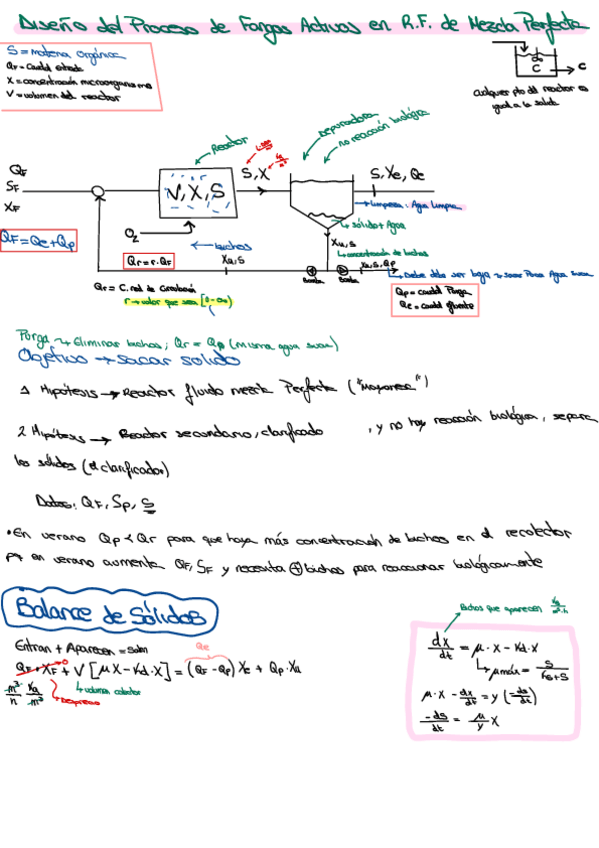 Diseño del Proceso de Fangos Activos en R.F. de Mezcla Perfecta
S = materia orgánica
QF = Caudal entrada
X = concentración microorganismo
V = volumen del reactor
C → C
cualquier pto del reactor es
igual a la salida
Reactor
Deparadora
no reacción biológica
QF
SF
XF
V, X, S
S, X
S, Xe, Qe
Limpieza: Agua Limpia
sólido + Agua
QF = Qe + Qp
O2
bichos
Xu, S
concentración de bichos
Qr = r·QF
Xu, S
Xu, S, Qp
Debe ser bajo → sacar Poca Agua Sucia
Bomba
Bomba
Qr = C. real de Circulación
r → valor que sea [0-∞)
Qp = caudal Purga
Qe = caudal efluente
Porga → Eliminar bichos; Qr = Qp (misma agua sucia)
Objetivo → sacar solido
1 Hipótesis → Reactor fluido mezcla Perfecta ("Mayonesa")
2 Hipótesis → Reactor secundario, clarificado , y no hay reacción biológica, separa
los sólidos (el clarificador)
Datos: QF, Sp, S
• En verano Qp < Qr para que haya más concentración de bichos en el recolector
pq en verano aumenta QF, SF y necesita ⊕ bichos para reaccionar biológicamente
Balance de Sólidos
Entran + Aparecen = Salen
Qe
QF · XF + V [μX − Kd·X] = (QF − Qp) Xe + Qp · Xu
m³ Kg
h m³
Desprecio
volumen
Bichos que aparecen Kg
m³·h
dx/dt = μ·X − Kd·X
μmáx = S/(Ks+S)
μ·X − dx/dt = y (−ds/dt)
−ds/dt = μ/y X